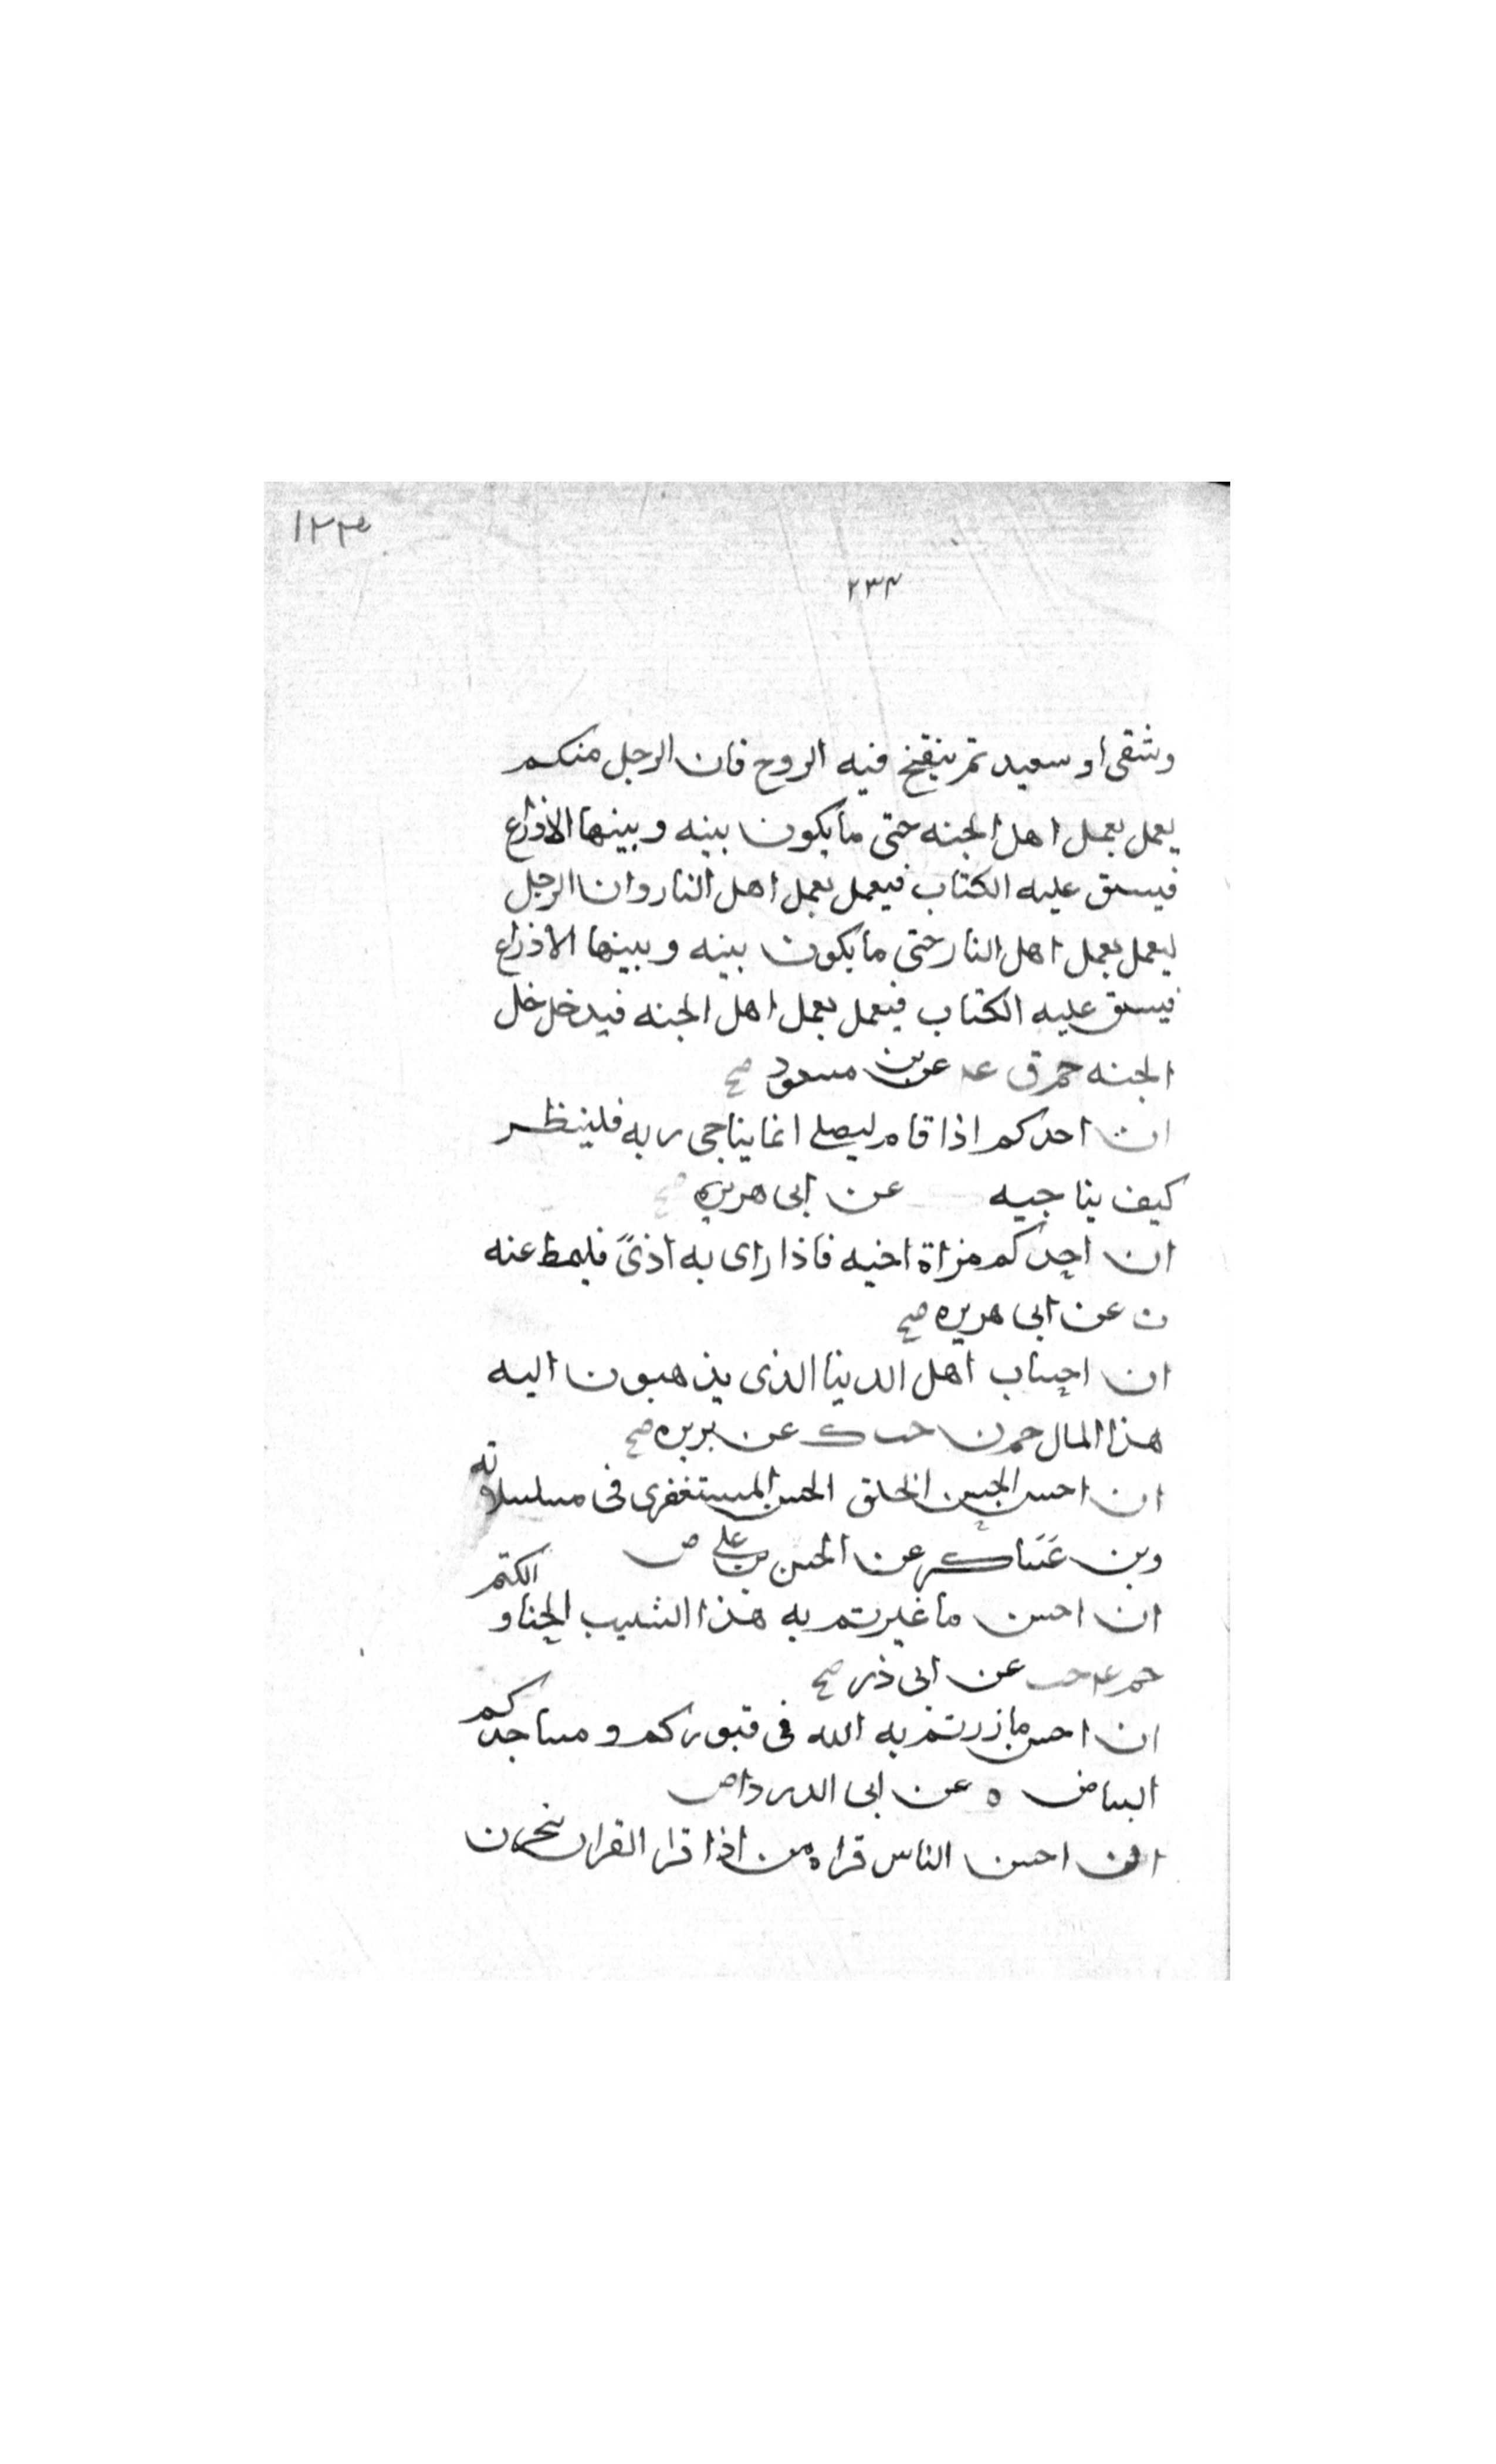 ١٢٣
٢٣٣
وشقى او سعيد ثم ينفخ فيه الروح فان الرجل منكم
يعمل بعمل اهل الجنه حتى ما يكون بينه وبينها الا ذراع
فيسبق عليه الكتاب فيعمل بعمل اهل النار وان الرجل
ليعمل بعمل اهل النار حتى ما يكون بينه وبينها الا ذراع
فيسبق عليه الكتاب فيعمل بعمل اهل الجنه فيدخل خل
الجنه حم ق عد عن بن مسعود صح
ان احدكم اذا قام ليصلے انما يناجى ربه فلينظر
كيف يناجيه عن ابى هريره صح
ان احدكم مراة اخيه فاذا راى به اذىً فليمط عنه
ت عن ابى هريره صح
ان احساب اهل الدينا الذى يذهبون اليه
هذا المال حم ن حب ك عن بريره صح
ان احسن الحسن الخلق الحسن المستغفرى فى مسلسلاته
وبن عَسَاكر عن الحسن بن على ض
ان احسن ما غيرتم به هذا الشيب الحنا والكتم
حم عد حب عن ابى ذر صح
ان احسن ما زرتم به الله فى قبوركم ومساجدكم
البياض ه عن ابى الدرداض
ان احسن الناس قراه من اذا قرا القران